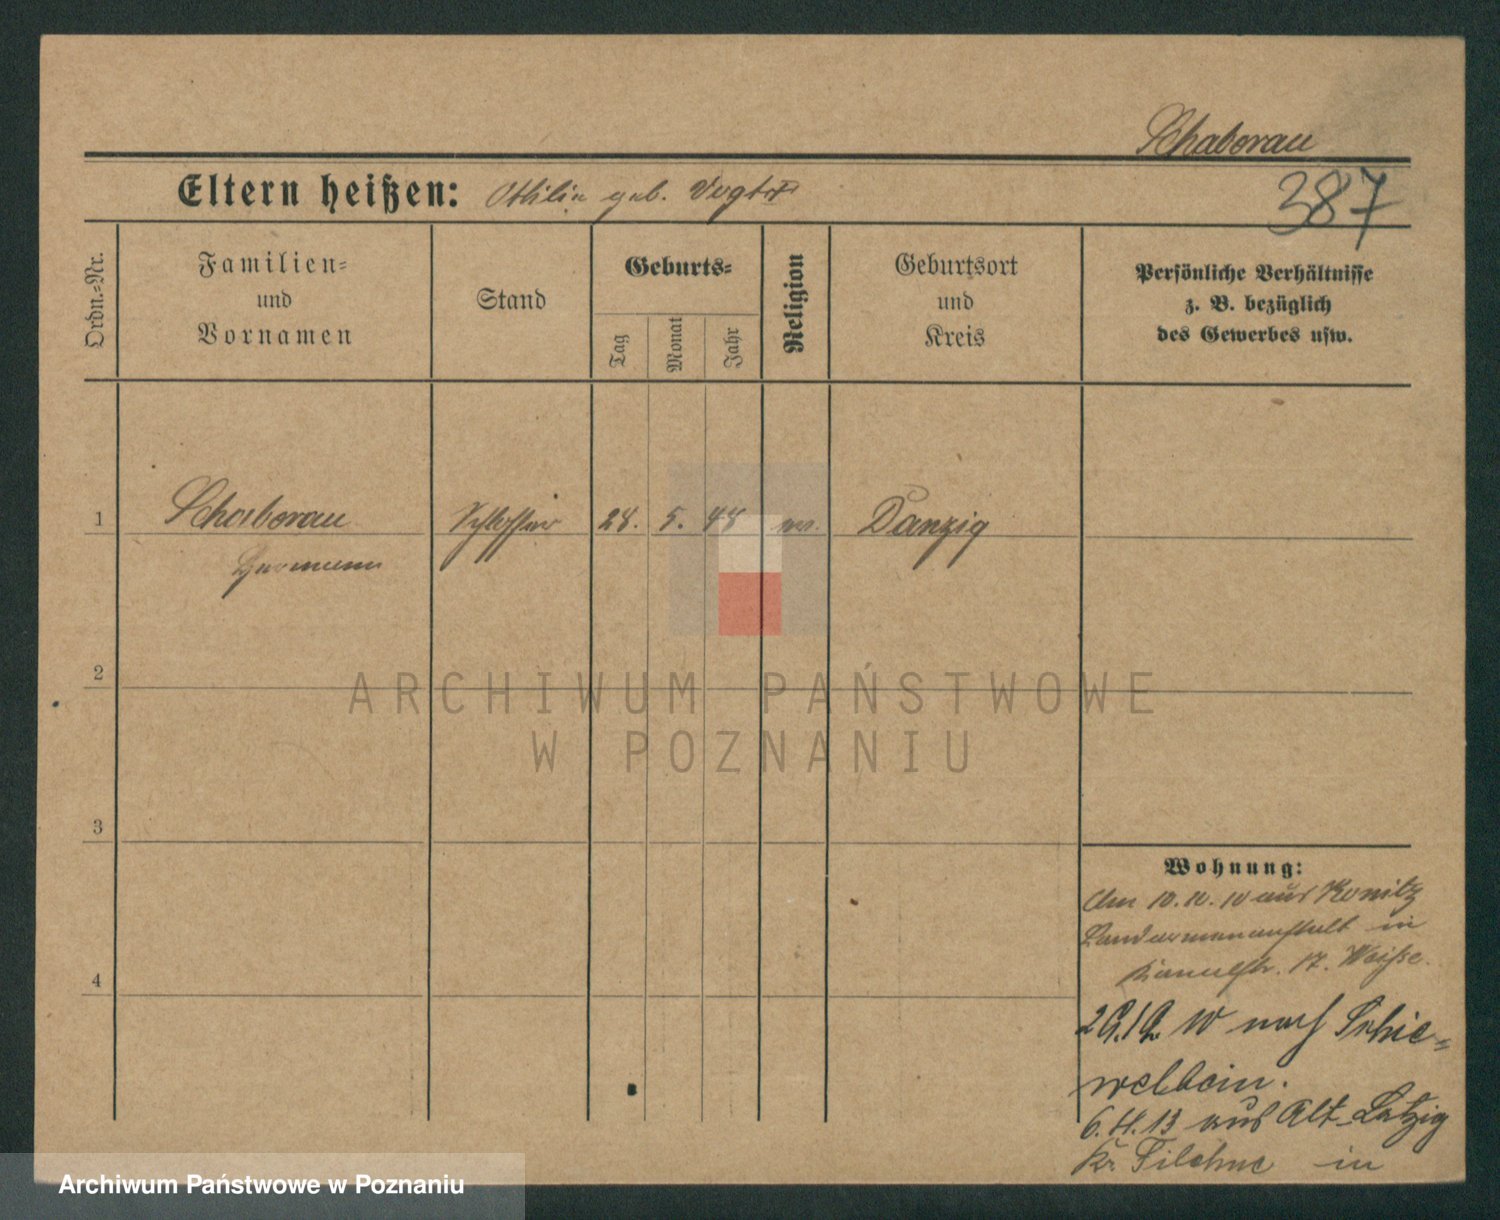 Schaborau
Eltern heißen: Othilie geb. Vogt
387
Ordn.-Nr.
Familien-
und
Vornamen
Stand
Geburts-
Tag
Monat
Jahr
Religion
Geburtsort
und
Kreis
Persönliche Verhältnisse
z. B. bezüglich
des Gewerbes usw.
1 Schaborau Schlosser 28. 5. 48 ev. Danzig
Hermann
2
ARCHIWUM PAŃSTWOWE
W POZNANIU
3
Wohnung:
Am 10. 10. 10 aus Konitz
Landarmenanstalt in
17. Waise.
29.12. 10 nach Schie-
welbein.
6. 11. 13 aus Alt-Latzig
Kr. Filehne in
4
Archiwum Państwowe w Poznaniu